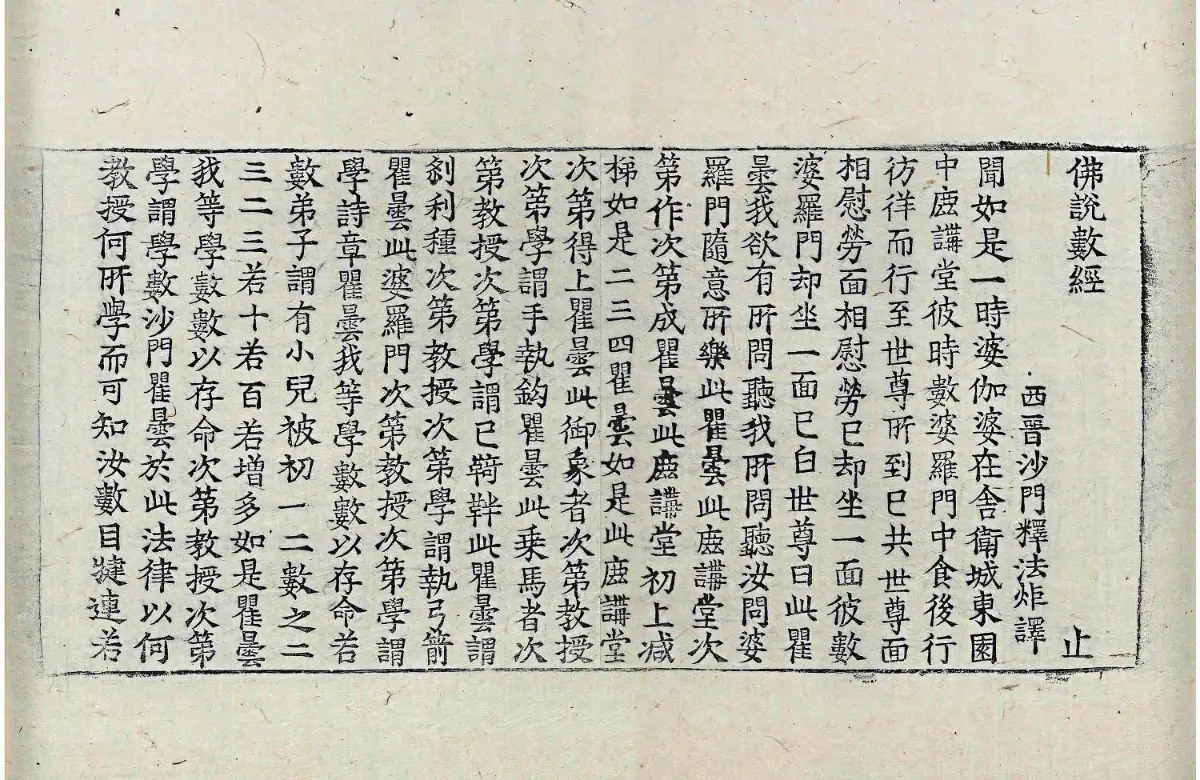 佛說數經 止
西晉沙門釋法炬譯
聞如是一時婆伽婆在舍衛城東園
中鹿講堂彼時數婆羅門中食後行
彷徉而行至世尊所到已共世尊面
相慰勞面相慰勞已却坐一面彼數
婆羅門却坐一面已白世尊曰此瞿
曇我欲有所問聽我所問聽汝問婆
羅門隨意所樂此瞿曇此鹿講堂次
第作次第成瞿曇此鹿講堂初上減
梯如是二三四瞿曇如是此鹿講堂
次第得上瞿曇此御象者次第教授
次第學謂手執鈎瞿曇此乗馬者次
第教授次第學謂已鞍靽此瞿曇謂
剎利種次第教授次第學謂執弓箭
瞿曇此婆羅門次第教授次第學謂
學詩章瞿曇我等學數數以存命若
數弟子謂有小兒被初一二數之二
三二三若十若百若增多如是瞿曇
我等學數數以存命次第教授次第
學謂學數沙門瞿曇於此法律以何
教授何所學而可知汝數目揵連若